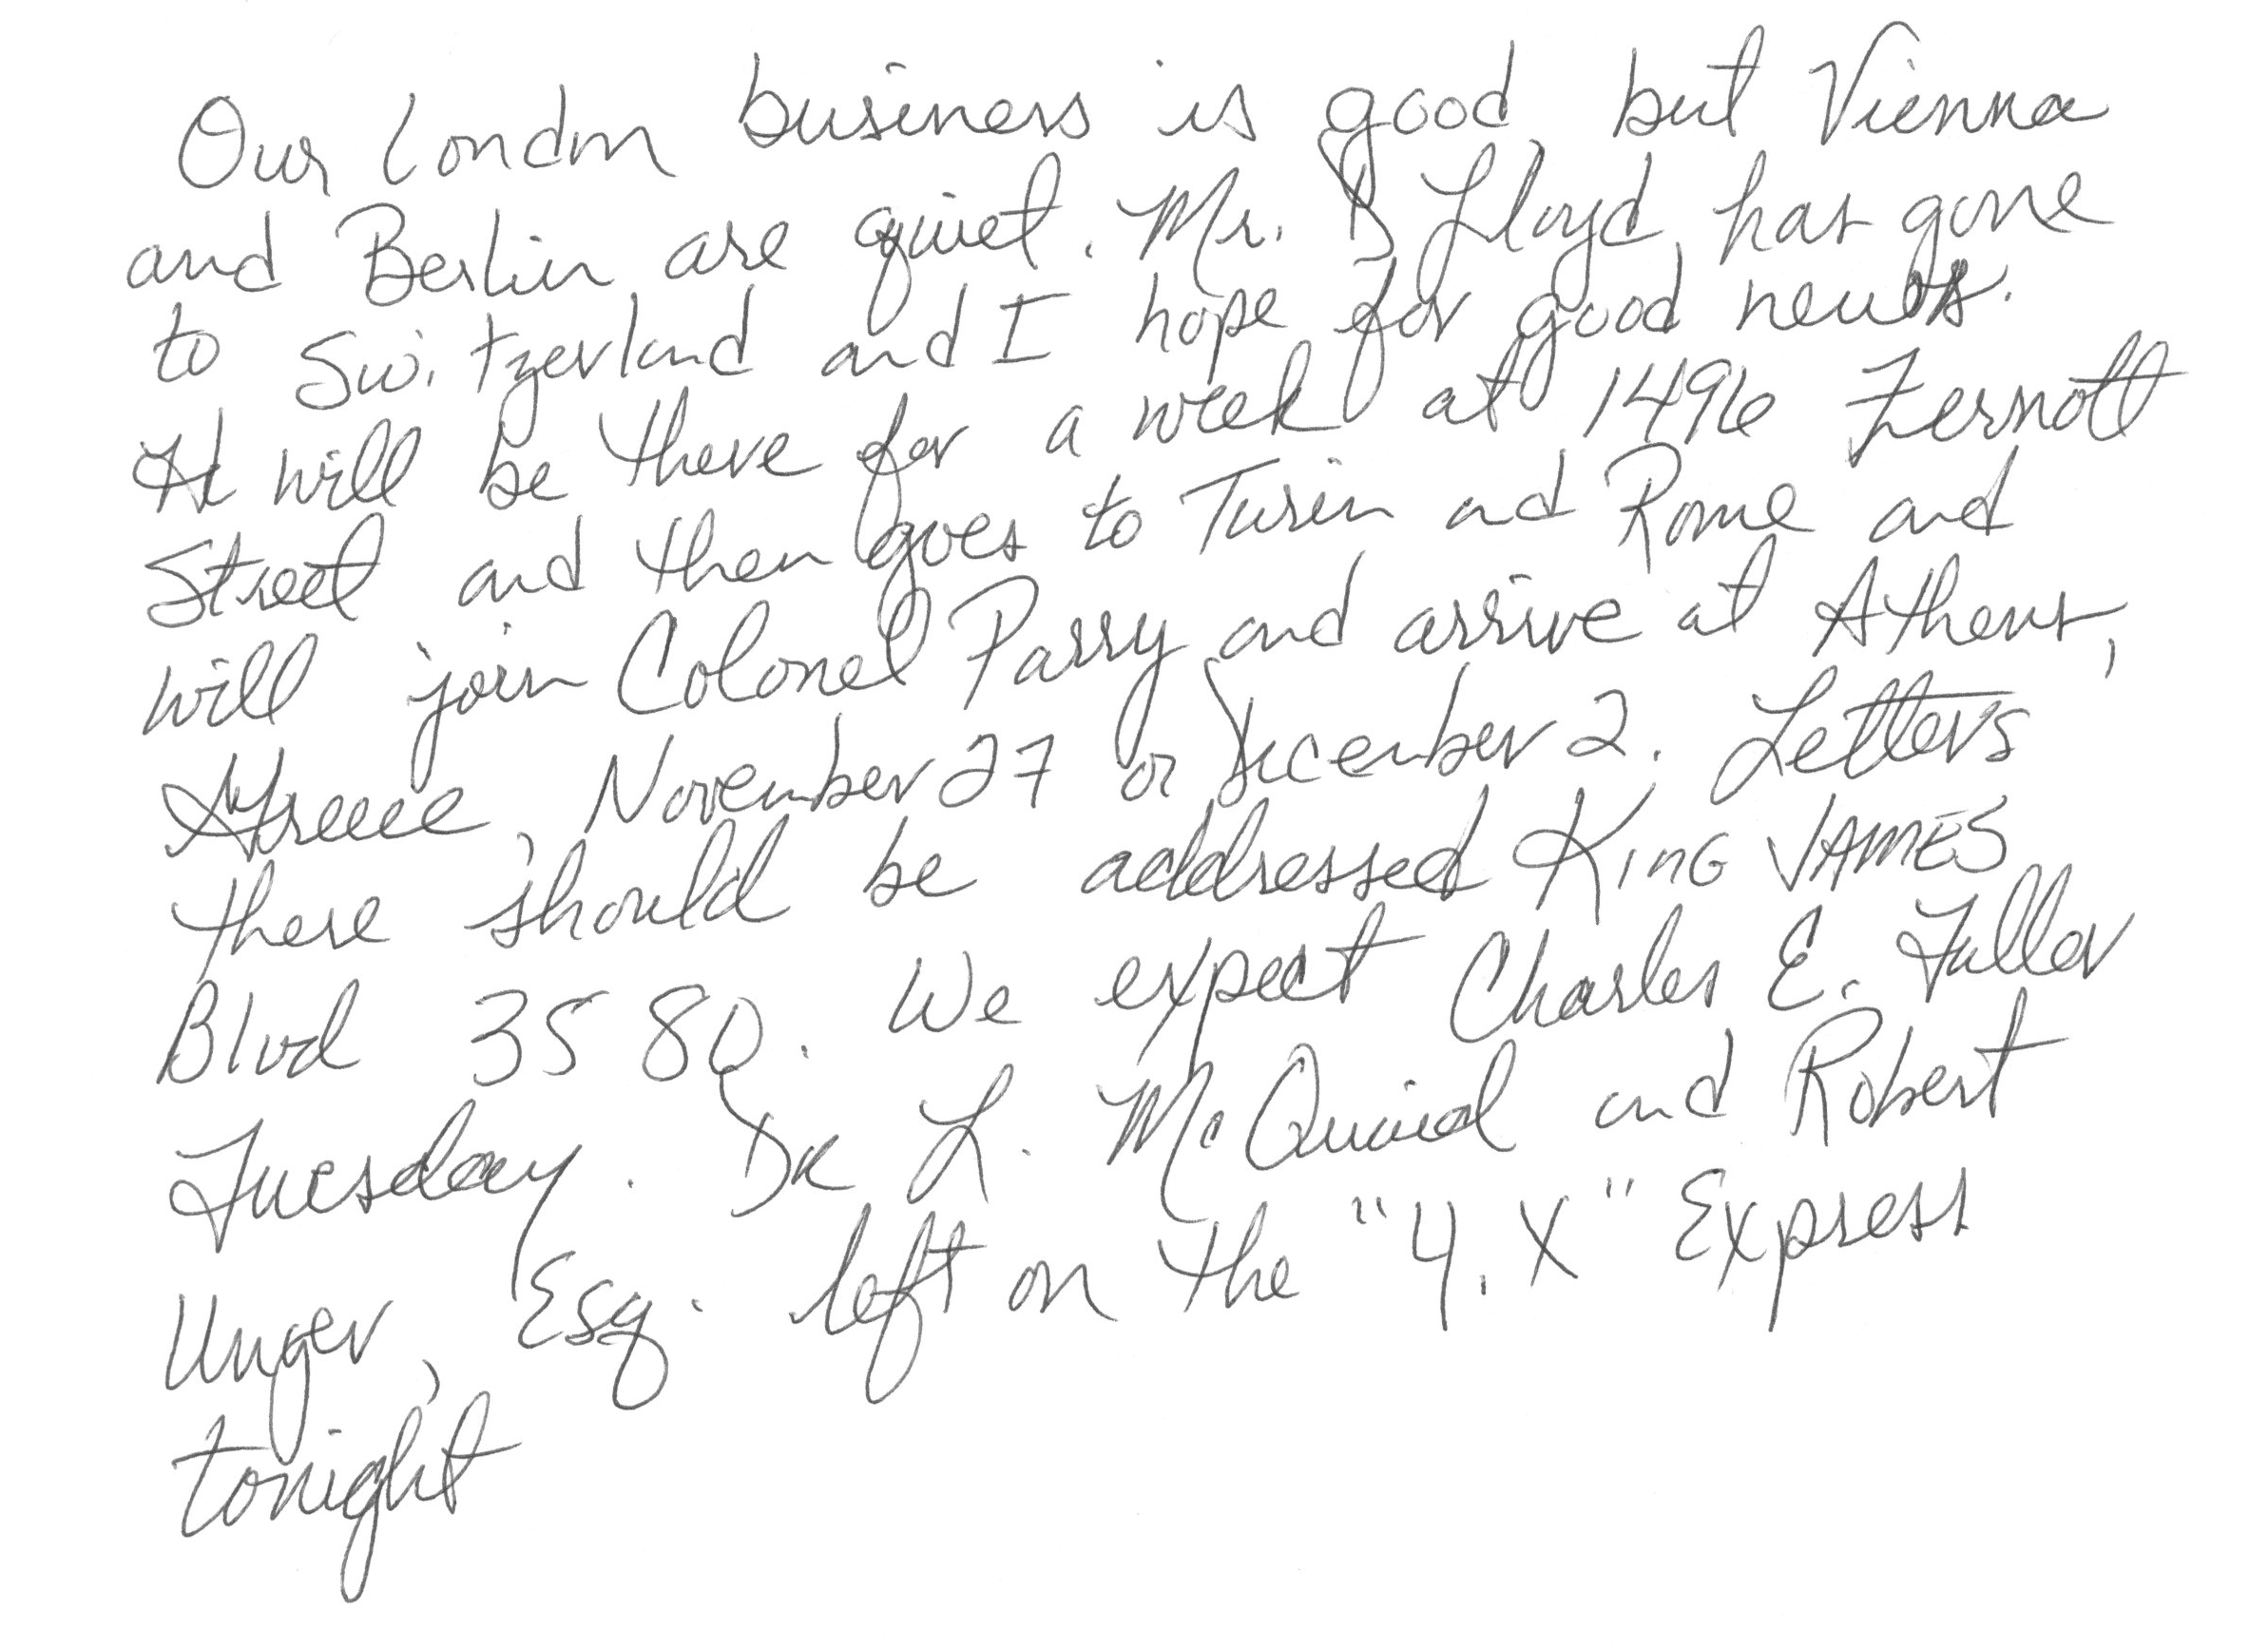 Our London business is good but Vienna
and Berlin are quiet. Mr. D Lloyd has gone
to Switzerland and I hope for good news.
He will be there for a week at 1496 Zermott
Street and then goes to Turin and Rome and
will join Colonel Parry and arrive at Athens,
Greece, November 27 or December 2. Letters
there should be addressed KING JAMES
Blvd 3580. We expect Charles E. Fuller
Tuesday. Dr L. McQuaid and Robert
Unger, Esq. left on the "Y.X" Express
tonight